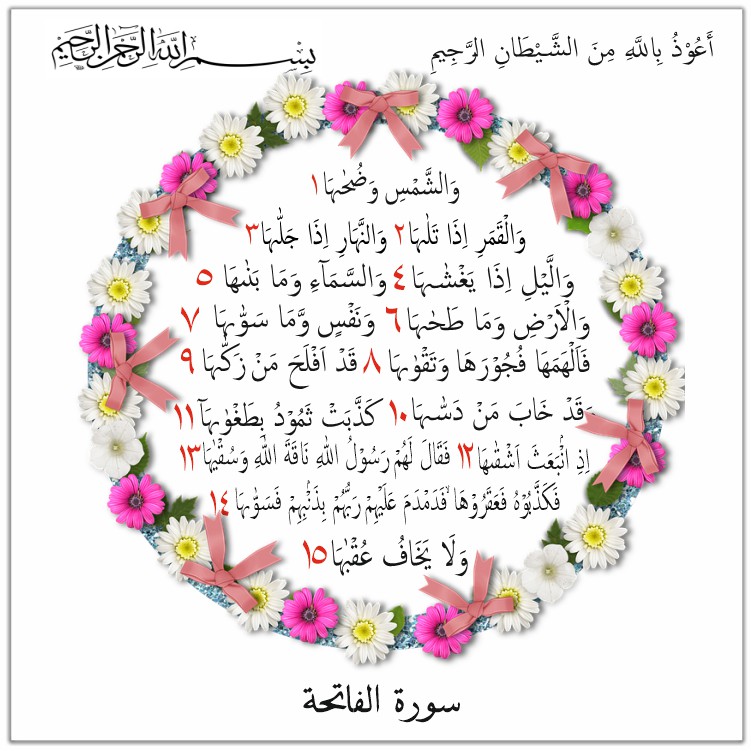 أَعُوْذُ بِاللَّهِ مِنَ الشَّيْطَانِ الرَّجِيمِ
بِسْمِ اللهِ الرَّحْمٰنِ الرَّحِيْمِ
وَالشَّمْسِ وَضُحٰىهَا ١
وَالْقَمَرِ اِذَا تَلٰىهَا ٢ وَالنَّهَارِ اِذَا جَلّٰىهَا ٣
وَالَّيْلِ اِذَا يَغْشٰىهَا ٤ وَالسَّمَآءِ وَمَا بَنٰىهَا ٥
وَالْاَرْضِ وَمَا طَحٰىهَا ٦ وَنَفْسٍ وَّمَا سَوّٰىهَا ٧
فَاَلْهَمَهَا فُجُوْرَهَا وَتَقْوٰىهَا ٨ قَدْ اَفْلَحَ مَنْ زَكّٰىهَا ٩
وَقَدْ خَابَ مَنْ دَسّٰىهَا ١٠ كَذَّبَتْ ثَمُوْدُ بِطَغْوٰىهَآ ١١
اِذِ انْۢبَعَثَ اَشْقٰىهَا ١٢ فَقَالَ لَهُمْ رَسُوْلُ اللّٰهِ نَاقَةَ اللّٰهِ وَسُقْيٰهَا ١٣
فَكَذَّبُوْهُ فَعَقَرُوْهَا ۙ فَدَمْدَمَ عَلَيْهِمْ رَبُّهُمْ بِذَنْۢبِهِمْ فَسَوّٰىهَا ١٤
وَلَا يَخَافُ عُقْبٰهَا ١٥
سورة الفاتحة